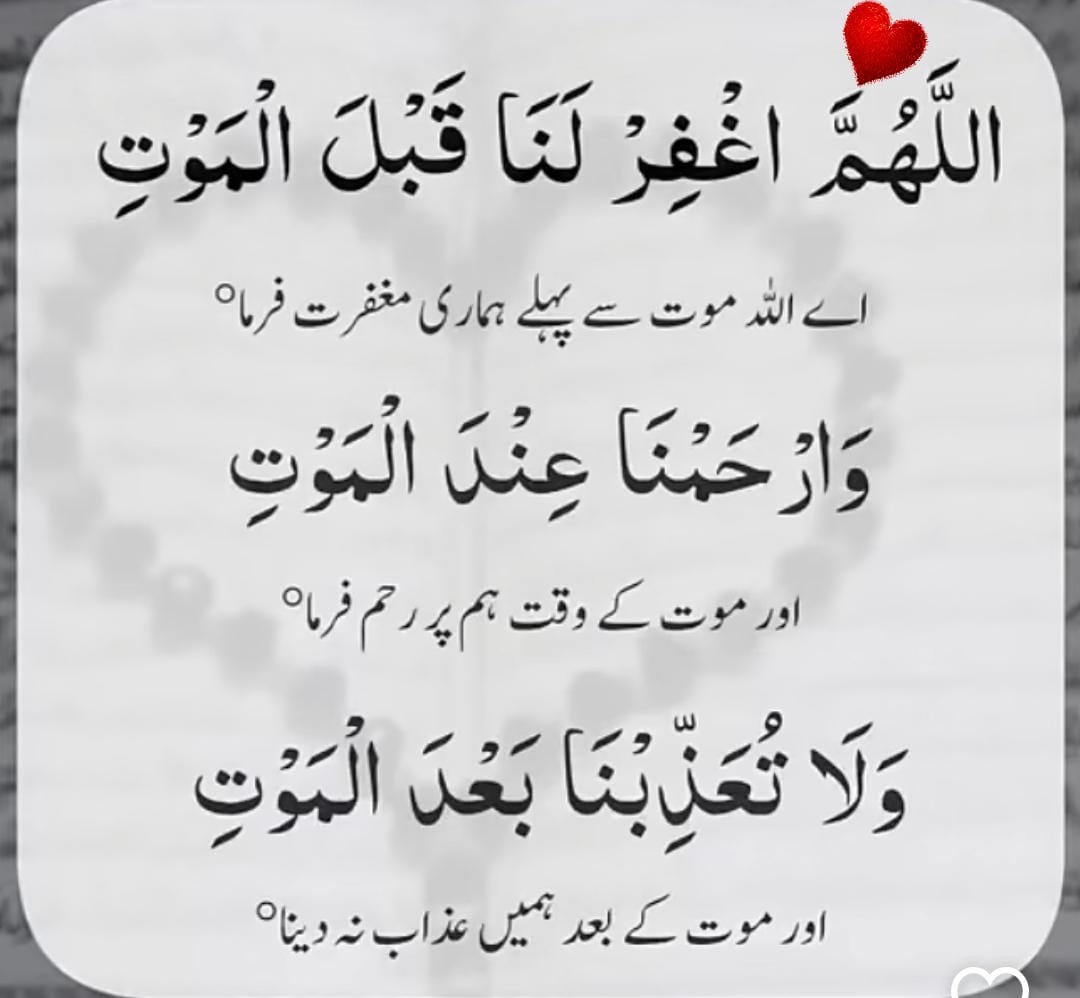 اللَّهُمَّ اغْفِرْ لَنَا قَبْلَ الْمَوْتِ
اے اللہ موت سے پہلے ہماری مغفرت فرما°
وَارْحَمْنَا عِنْدَ الْمَوْتِ
اور موت کے وقت ہم پر رحم فرما°
وَلَا تُعَذِّبْنَا بَعْدَ الْمَوْتِ
اور موت کے بعد ہمیں عذاب نہ دینا°